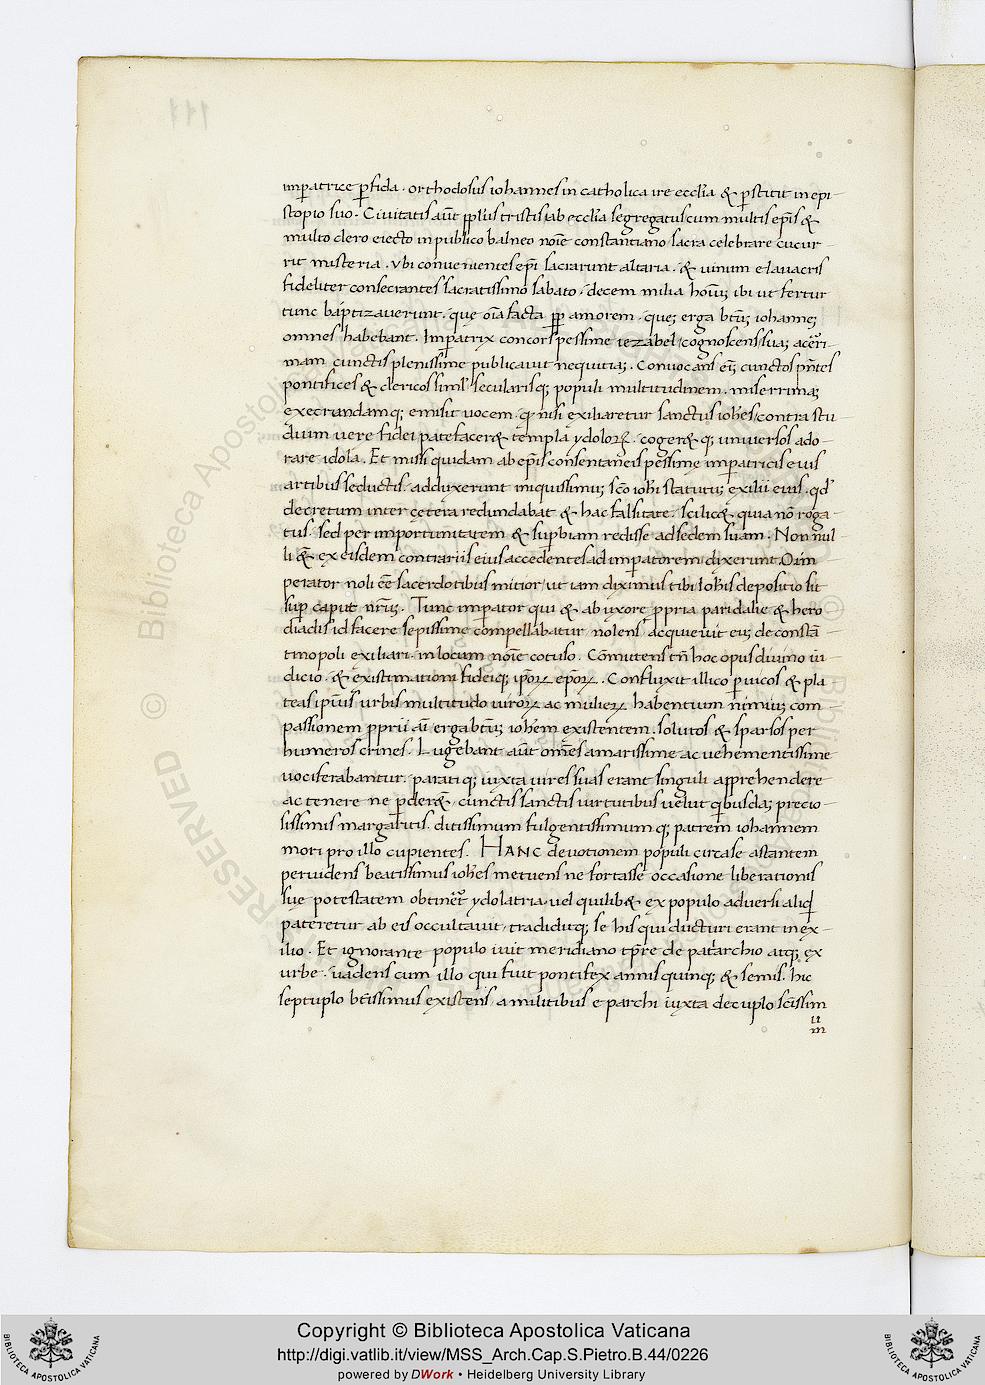 imperatrice p̄fida. orthodosus iohannes in catholica ire eccl̄ia & p̄stitit in epi-
scopio suo. Civitatis aūt pp̄lus tristis ab eccl̄ia segregatus cum multis ep̄is &
multo clero eiecto in publico balneo noīe constantiano sacra celebrare cucur-
rit misteria. ubi convenientes ep̄i sacrarunt altaria. & vinum e lavacris
fideliter consecrantes sacratissimo sabato. decem milia hoīuꝫ ibi ut fertur
tunc baptizaverunt. quę oīa facta pp̄ amorem. queꝫ erga btuꝫ iohanneꝫ
omnes habebant. Imperatrix concors pessime iezabel cognoscens suaꝫ acerri-
mam cunctis plenissime publicavit nequitiaꝫ. Convocans eīꝫ cunctos p̄ntes
pontifices & clericos siml̄ secularisqꝫ populi multitudinem. miserrimaꝫ
execrandamqꝫ emisit vocem. qd̄ nisi exiliaretur sanctus ioh̄es contra stu-
dium vere fidei patefacer& templa ydoloꝝ. coger&qꝫ universos ado-
rare idola. Et missi quidam ab ep̄is consentaneis pessime imperatricis eius
artibus seductis. adduxerunt iniquissimuꝫ sc̄o ioh̄i statutuꝫ exilii eius. qd̄
decretum inter cętera redundabat & hac falsitate. scilic& quia nō roga-
tus. sed per importunitatem & sup̄biam redisse ad sedem suam. Non nul-
li & ex eisdem contrariis eius accedentes ad imperatorem dixerunt. O im-
perator noli cē sacerdotibus mitior ut iam diximus tibi Ioh̄is depositio sit
sup̄ caput nr̄uꝫ. Tunc imperator qui & ab uxore p̄pria paridalie & hero-
diadis id facere sepissime compellabatur nolens acquievit euꝫ de constā-
tinopoli exiliari. in locum noīe cotuso. Cōmutens tn̄ hoc opus divino iu-
dicio. & existimationi fideiqꝫ ipsoꝝ ep̄oꝝ. Confluxit illico p̄ vicos & pla-
teas ipsius urbis multitudo viroꝝ ac mulieꝝ habentium nimiuꝫ com-
passionem p̄prii aīi erga btuꝫ ioh̄em existentem. solutos & sparsos per
humeros crines. Lugebant aūt om̄es amarissime ac vehementissime
vociferabantur. paratiqꝫ iuxta vires suas erant singuli apprehendere
ac tenere ne p̄der&. cunctis sanctis virtutibus velut qibusdaꝫ precio-
sissimis margaritis. ditissimum fulgentissimumqꝫ patrem iohannem
mori pro illo cupientes. HANC devotionem populi circa se astantem
pervidens beatissimus ioh̄es metuens ne fortasse occasione liberationis
sue potestatem obtiner& ydolatria. vel quilib& ex populo adversi aliqd̄
pateretur ab eis occultavit. tradiditqꝫ se his qui ducturi erant in ex-
ilio. Et ignorante populo ivit meridiano tp̄re de patriarchio atqꝫ ex
urbe. vadens cum illo qui fuit pontifex annis quinqꝫ & semis. hic
septuplo btissimus existens. a militibus eparchi iuxta decuplo scīssim
u
m
Copyright © Biblioteca Apostolica Vaticana
http://digi.vatlib.it/view/MSS_Arch.Cap.S.Pietro.B.44/0226
powered by DWork • Heidelberg University Library